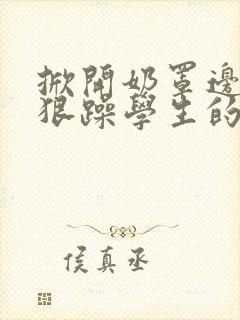 掀開奶罩邊
狠躁學生的
侯真丞